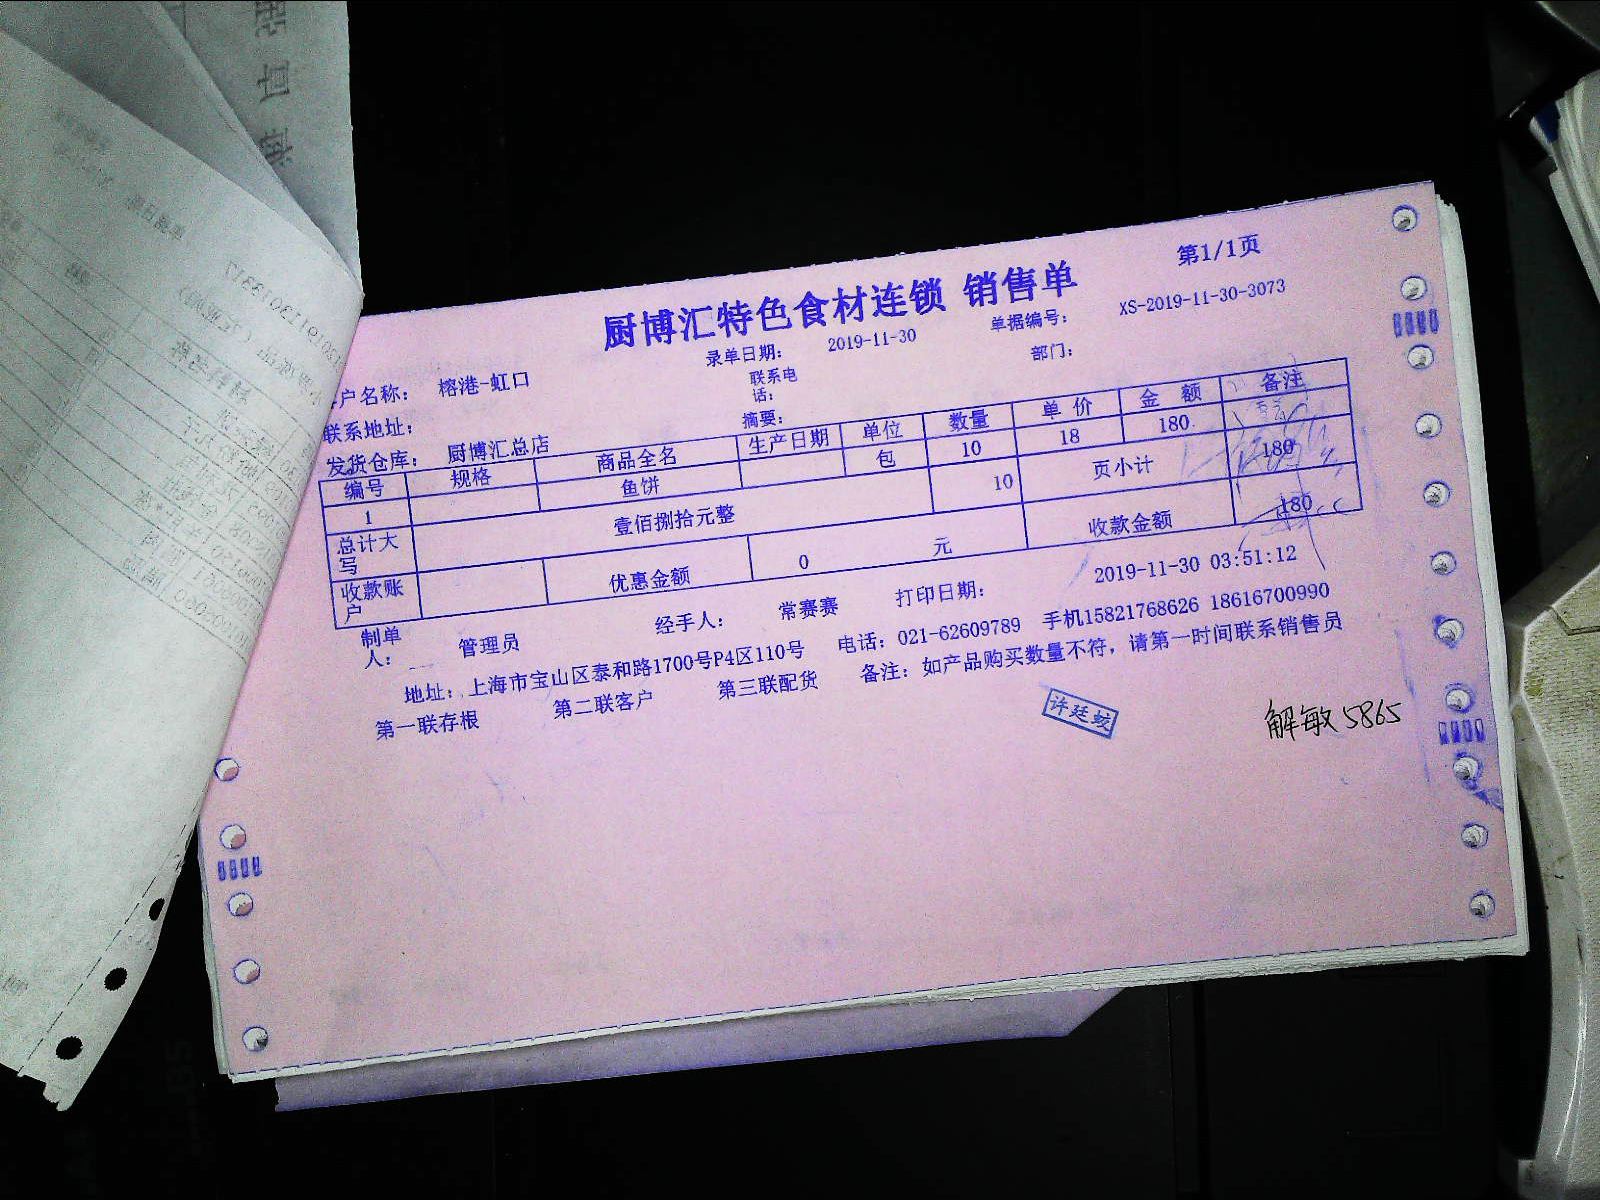 第1/1页
厨博汇特色食材连锁 销售单
录单日期： 2019-11-30 单据编号： XS-2019-11-30-3073
户名称： 榕港-虹口 联系电话： 部门：
联系地址： 摘要：
发货仓库： 厨博汇总店
编号 规格 商品全名 生产日期 单位 数量 单价 金额 备注
1 鱼饼 包 10 18 180
总计大写 壹佰捌拾元整 10 页小计 180
收款账户 优惠金额 0 元 收款金额 180
制单人： 管理员 经手人： 常赛赛 打印日期： 2019-11-30 03:51:12
地址： 上海市宝山区泰和路1700号P4区110号 电话：021-62609789 手机15821768626 18616700990
第一联存根 第二联客户 第三联配货 备注：如产品购买数量不符，请第一时间联系销售员
许廷蛟
解敏 5865